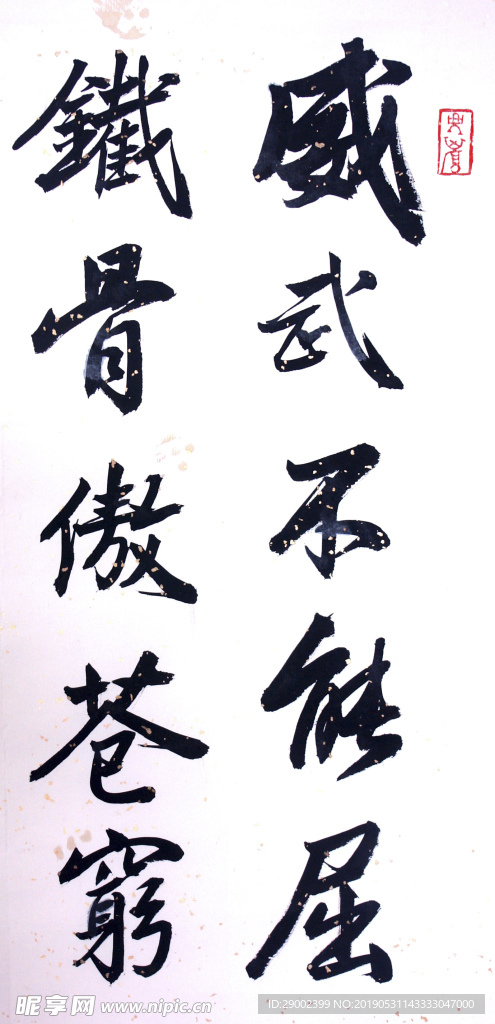 威武不能屈
鐵骨傲苍窮
昵享网 www.nipic.cn
ID:29002399 NO:20190531143333047000